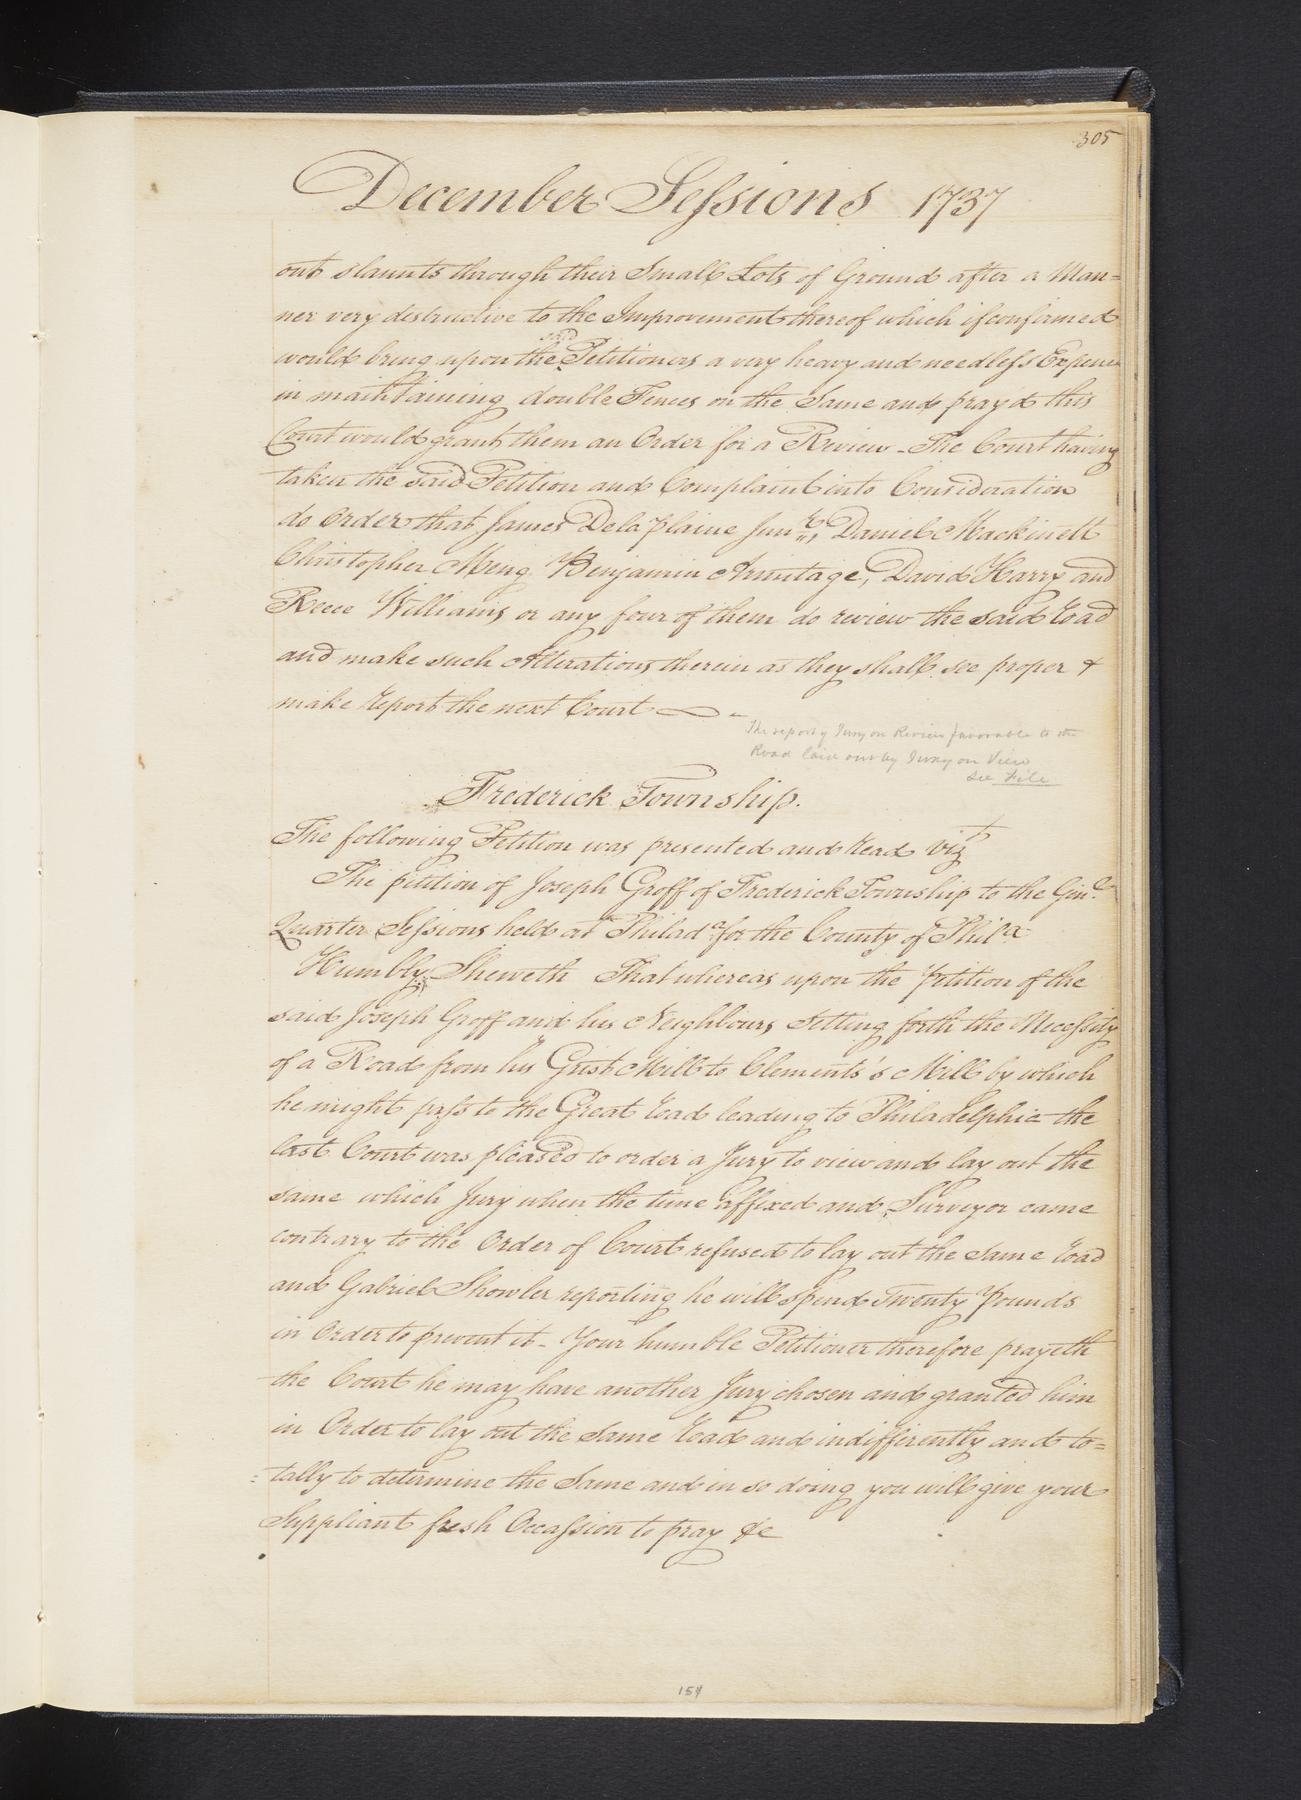 305
December Sessions 1737
out slaunts through their Small Lots of Ground after a Man=
ner very destructive to the Improvement thereof which if confirmed
said
would bring upon the Petitioners a very heavy and needless Expence
in maintaining double Fences on the Same and pray'd this
Court would grant them an Order for a Review - The Court having
taken the said Petition and Complaint into Consideration
do order that James Dela plaine Junr., Daniel Mackinett
Christopher Meng Benjamin Armitage, David Harry and
Reece Williams or any four of them do review the said Road
and make such Alterations therein as they shall see proper &
make report the next Court
The report of Jury on Review favorable to the
Road laid out by Jury on View
See File
Frederick Township.
The following Petition was presented and read vizt
The petition of Joseph Groff of Frederick Township to the Genl.
Quarter Sessions held at Philada for the County of Phila
Humbly Sheweth That whereas upon the Petition of the
said Joseph Groff and his Neighbours Setting forth the Necessity
of a Road from his Grist Mill to Clements's Mill by which
he might pass to the Great road leading to Philadelphia the
last Court was pleased to order a Jury to view and lay out the
same which Jury when the time affixed and Surveyor came
contrary to the Order of Court refused to lay out the same road
and Gabriel Showler reporting he will Spend Twenty Pounds
in Order to prevent it - Your humble Petitioner therefore prayeth
the Court he may have another Jury chosen and granted him
in Order to lay out the Same Road and indifferently and to=
=tally to determine the Same and in so doing you will give your
Suppliant fresh Occassion to pray &c
154